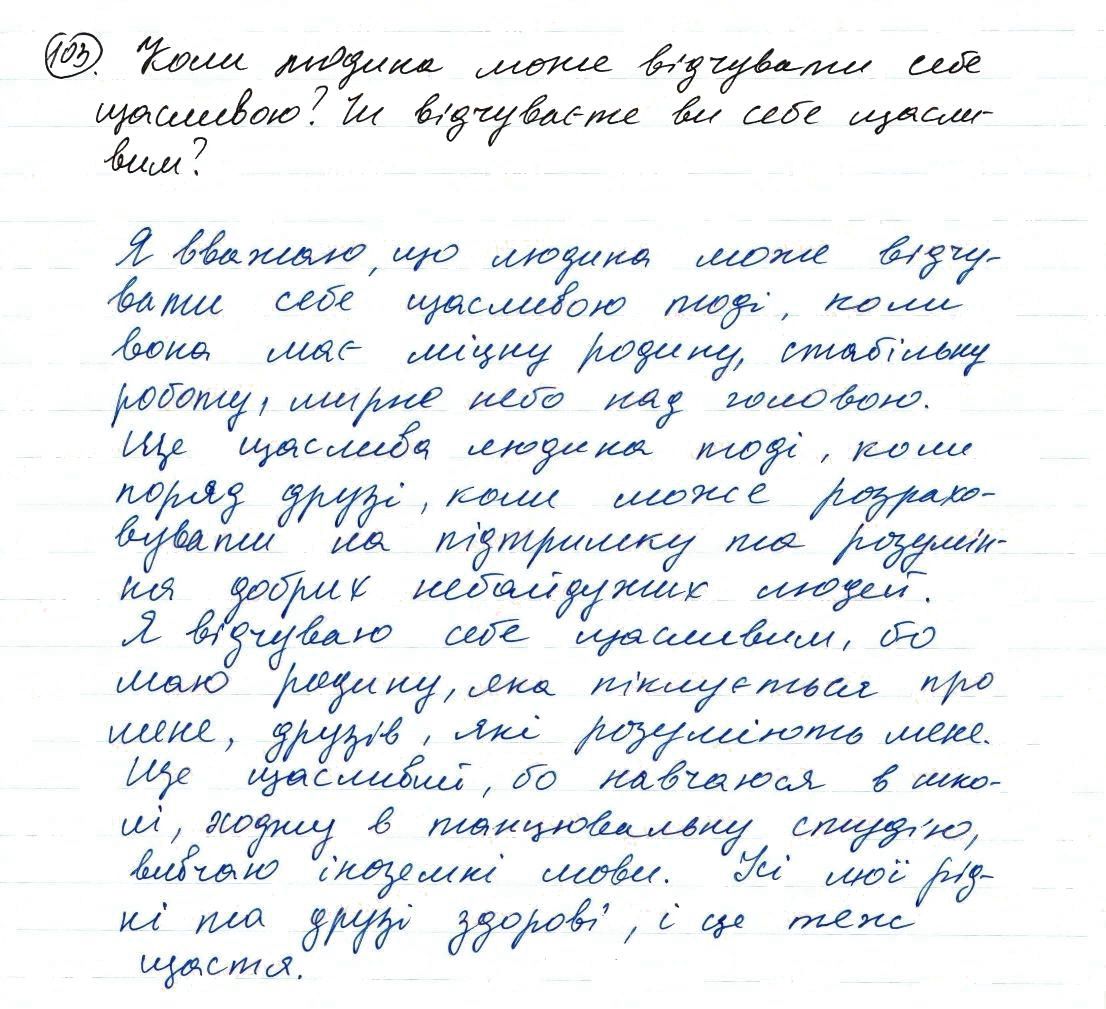 103. Коли людина може відчувати себе
щасливою? Чи відчуваєте ви себе щасли-
вим?
Я вважаю, що людина може відчу-
вати себе щасливою тоді, коли
вона має міцну родину, стабільну
роботу, мирне небо над головою.
Ще щаслива людина тоді, коли
поряд друзі, коли може розрахо-
вувати на підтримку та розумін-
ня добрих небайдужих людей.
Я відчуваю себе щасливим, бо
маю родину, яка піклується про
мене, друзів, які розуміють мене.
Ще щасливий, бо навчаюся в шко-
лі, ходжу в танцювальну студію,
вивчаю іноземні мови. Усі мої рід-
ні та друзі здорові, і це теж
щастя.